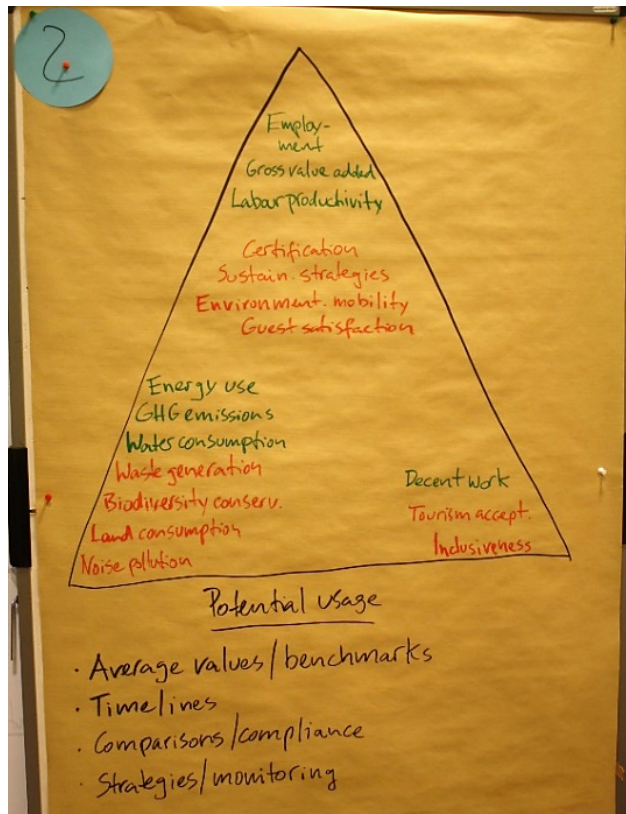 2
Employ-
ment
Gross value added
Labour productivity
Certification
Sustain. strategies
Environment. mobility
Guest satisfaction
Energy use
GHG emissions
Water consumption
Waste generation
Biodiversity conserv.
Land consumption
Noise pollution
Decent work
Tourism accept.
Inclusiveness
Potential usage
· Average values/benchmarks
· Timelines
· Comparisons/compliance
· Strategies/monitoring